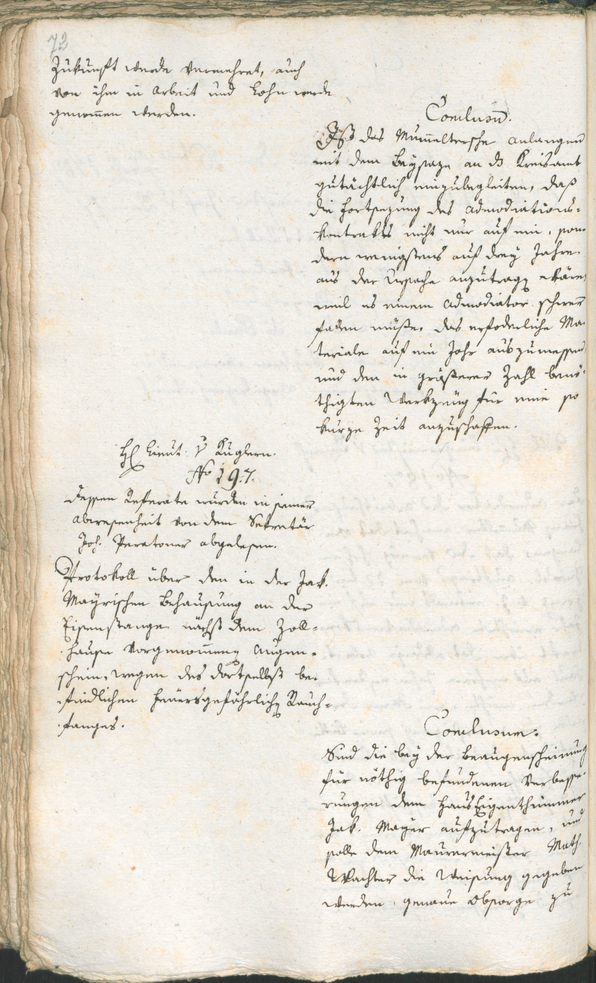 72
Zukunft werde vermehret, auch
von ihm in Arbeit und Lohn werde
genommen werden.
Conclusum.
Ist das Mumeltersche anlangen
mit dem Beysaze an das Kreisamt
gutächtlich einzubegleiten, daß
die Fortsezung des Admodiations-
kontrakts nicht nur auf ein, son-
dern wenigstens auf drey Jahre
aus der Ursache anzutragen wäre,
weil es einem Admodiator schwer
fallen müße, das erforderliche Ma-
teriale auf ein Jahr auszumessen
und den in größerer Zahl benö-
thigten Werkzeug für eine so
kurze Zeit anzuschaffen.
H. Lieut. v Kuglern.
No 197.
dessen Referate wurden in seiner
Abwesenheit von dem Sekretär
Joh. Peratoner abgelesen.
Protokoll über den in der Jak.
Mayrischen Behausung an der
Eisenstange nächst dem Zoll-
hause vorgenommenen Augen-
schein, wegen des dortselbst be-
findlichen feuersgefährlichen Rauch-
fanges.
Conclusum.
Sind die bey der Beaugenscheinung
für nöthig befundenen Verbesse-
rungen dem Hauseigenthümmer
Jak. Mayer aufzutragen, und
solle dem Maurermeister Math.
Wachter die Weisung gegeben
werden, genaue Obsorge zu